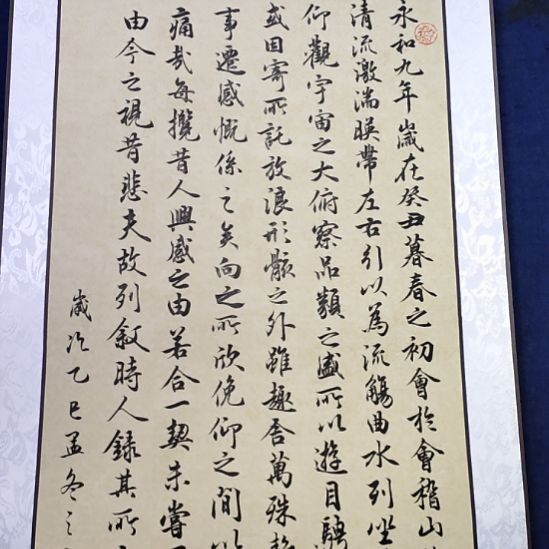 永和九年歲在癸丑暮春之初會於會稽山
清流激湍暎帶左右引以為流觴曲水列坐
仰觀宇宙之大俯察品類之盛所以遊目騁
或因寄所託放浪形骸之外雖趣舍萬殊
事遷感慨係之矣向之所欣俛仰之間以
痛哉每攬昔人興感之由若合一契未嘗
由今之視昔悲夫故列敘時人錄其所
歲次乙巳孟冬之